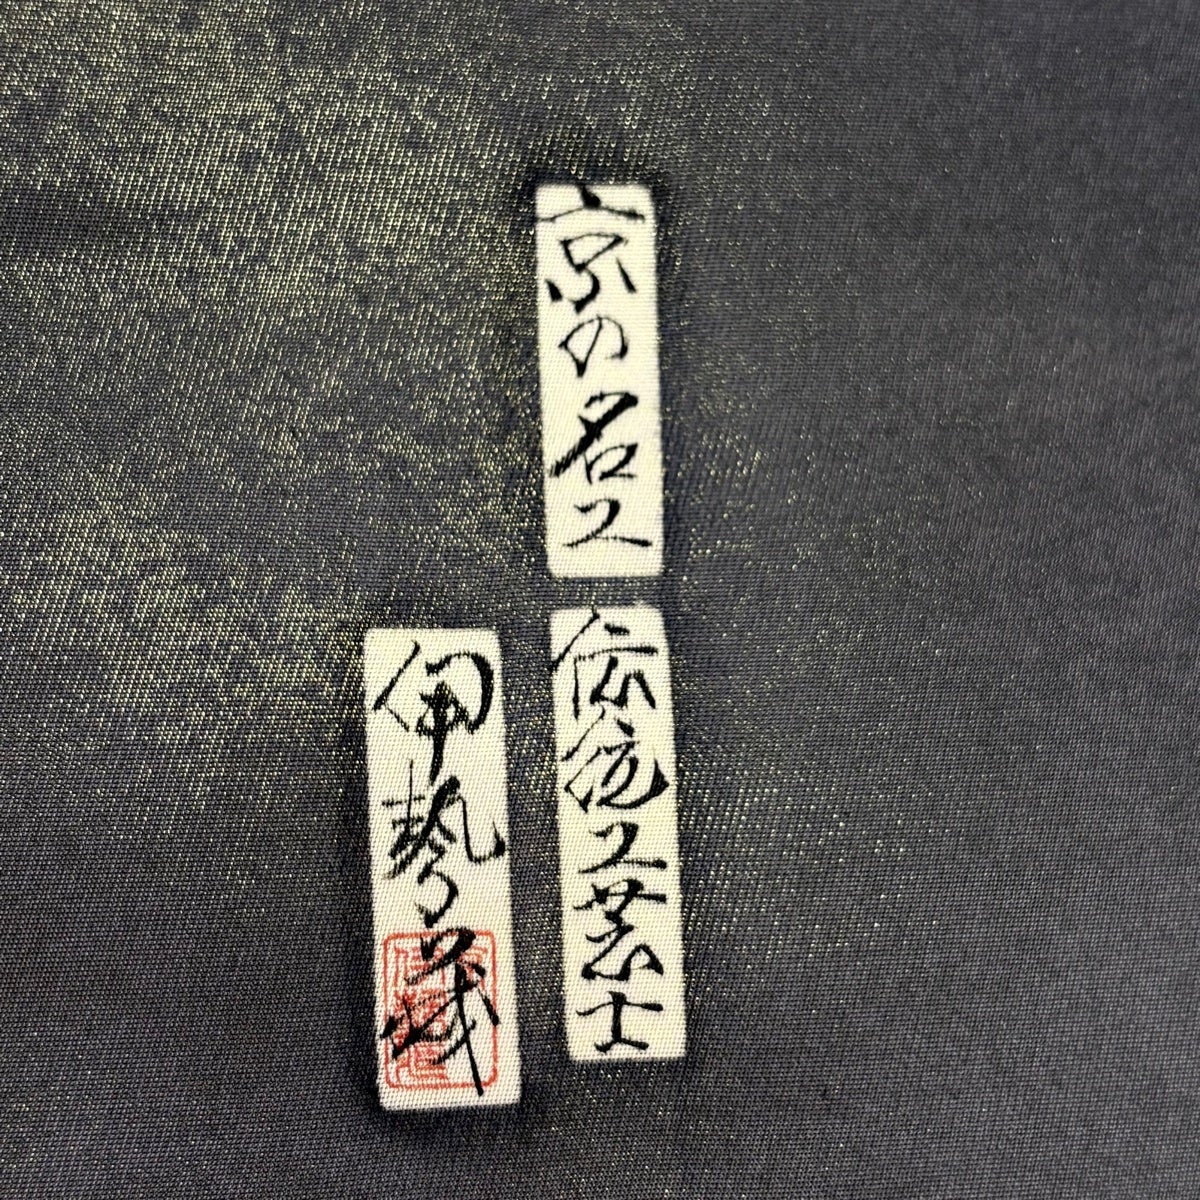 京の名工
伝統工芸士
伊勢茂